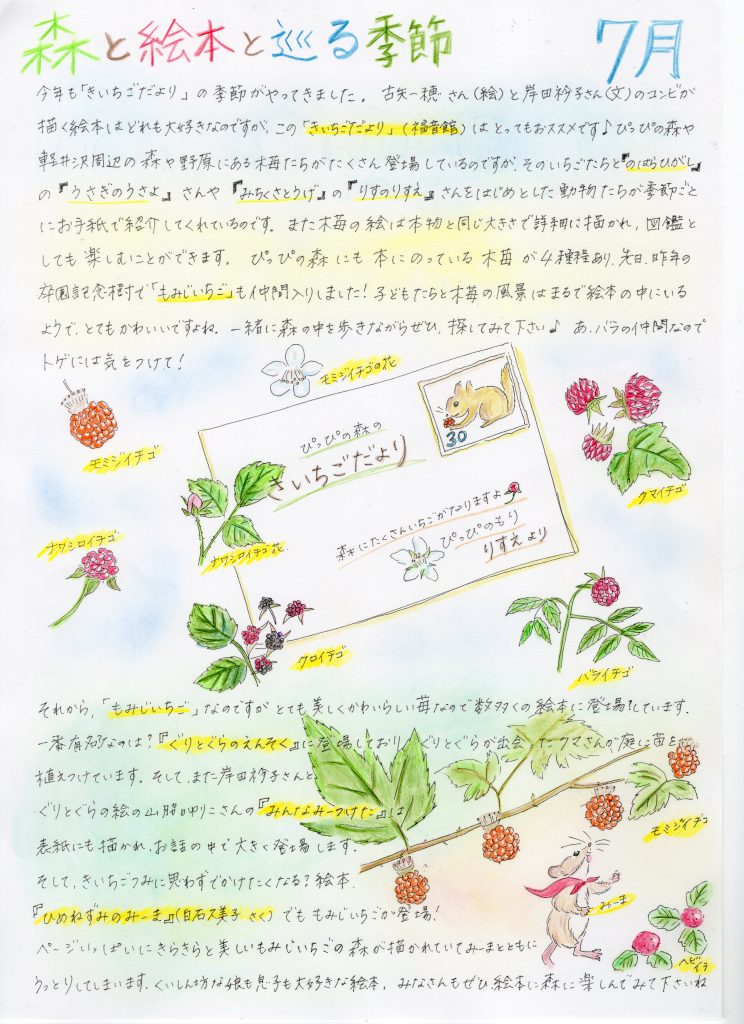 森と絵本と巡る季節 7月
今年も「きいちごだより」の季節がやってきました。 古矢一穂さん(絵)と岸田衿子さん(文)のコンビが
描く絵本はどれも大好きなのですが、この「きいちごだより」(福音館)はとってもおススメです♪ ぴっぴの森や
軽井沢周辺の森や野原にある苺たちがたくさん登場しているのですが、そのいちごたちと『のはらひがし』
の『うさぎのうさよ』さんや『みちくさとうげ』の『りすのりすえ』さんをはじめとした動物たちが季節ごと
にお手紙で紹介してくれているのです。また木苺の絵は本物と同じ大きさで詳細に描かれ、図鑑と
しても楽しむことができます。 ぴっぴの森にも本にのっている木苺が4種程あり、先日、昨年の
卒園記念樹で「もみじいちご」も仲間入りしました!子どもたちと木苺の風景はまるで絵本の中にいる
ようで、とてもかわいいですよね。一緒に森の中を歩きながらぜひ、探してみて下さい♪ あ、バラの仲間なので
トゲには気をつけて!
モミジイチゴの花
モミジイチゴ
30
ぴっぴの森の
きいちごだより
クマイチゴ
ナワシロイチゴ
ナワシロイチゴ花
森にたくさんいちごがなりますよ
ぴっぴのもり
りすえより
クロイチゴ
バライチゴ
それから、「もみじいちご」なのですが とても美しくかわいらしい苺なので数多くの絵本に登場しています。
一番有名なのは?『ぐりとぐらのえんそく』に登場しており、ぐりとぐらが出会ったクマさんが庭に苗を
植えつけています。そして、また岸田衿子さんと、
ぐりとぐらの絵の山脇かりこさんの『みんなみーつけた』は
表紙にも描かれ、お話の中で大きく登場します。
そして、きいちごつみに思わずでかけたくなる?絵本、
モミジイチゴ
みーま
『ひめねずみのみーま』(白石久美子 さく)でももみじいちごが登場!
ページいっぱいにきらきらと美しいもみじいちごの森が描かれていてみーまとともに
ヘビイチ
うっとりしてしまいます。くいしん坊な娘も息子も大好きな絵本。 みなさんもぜひ、絵本に森に楽しんでみて下さいね